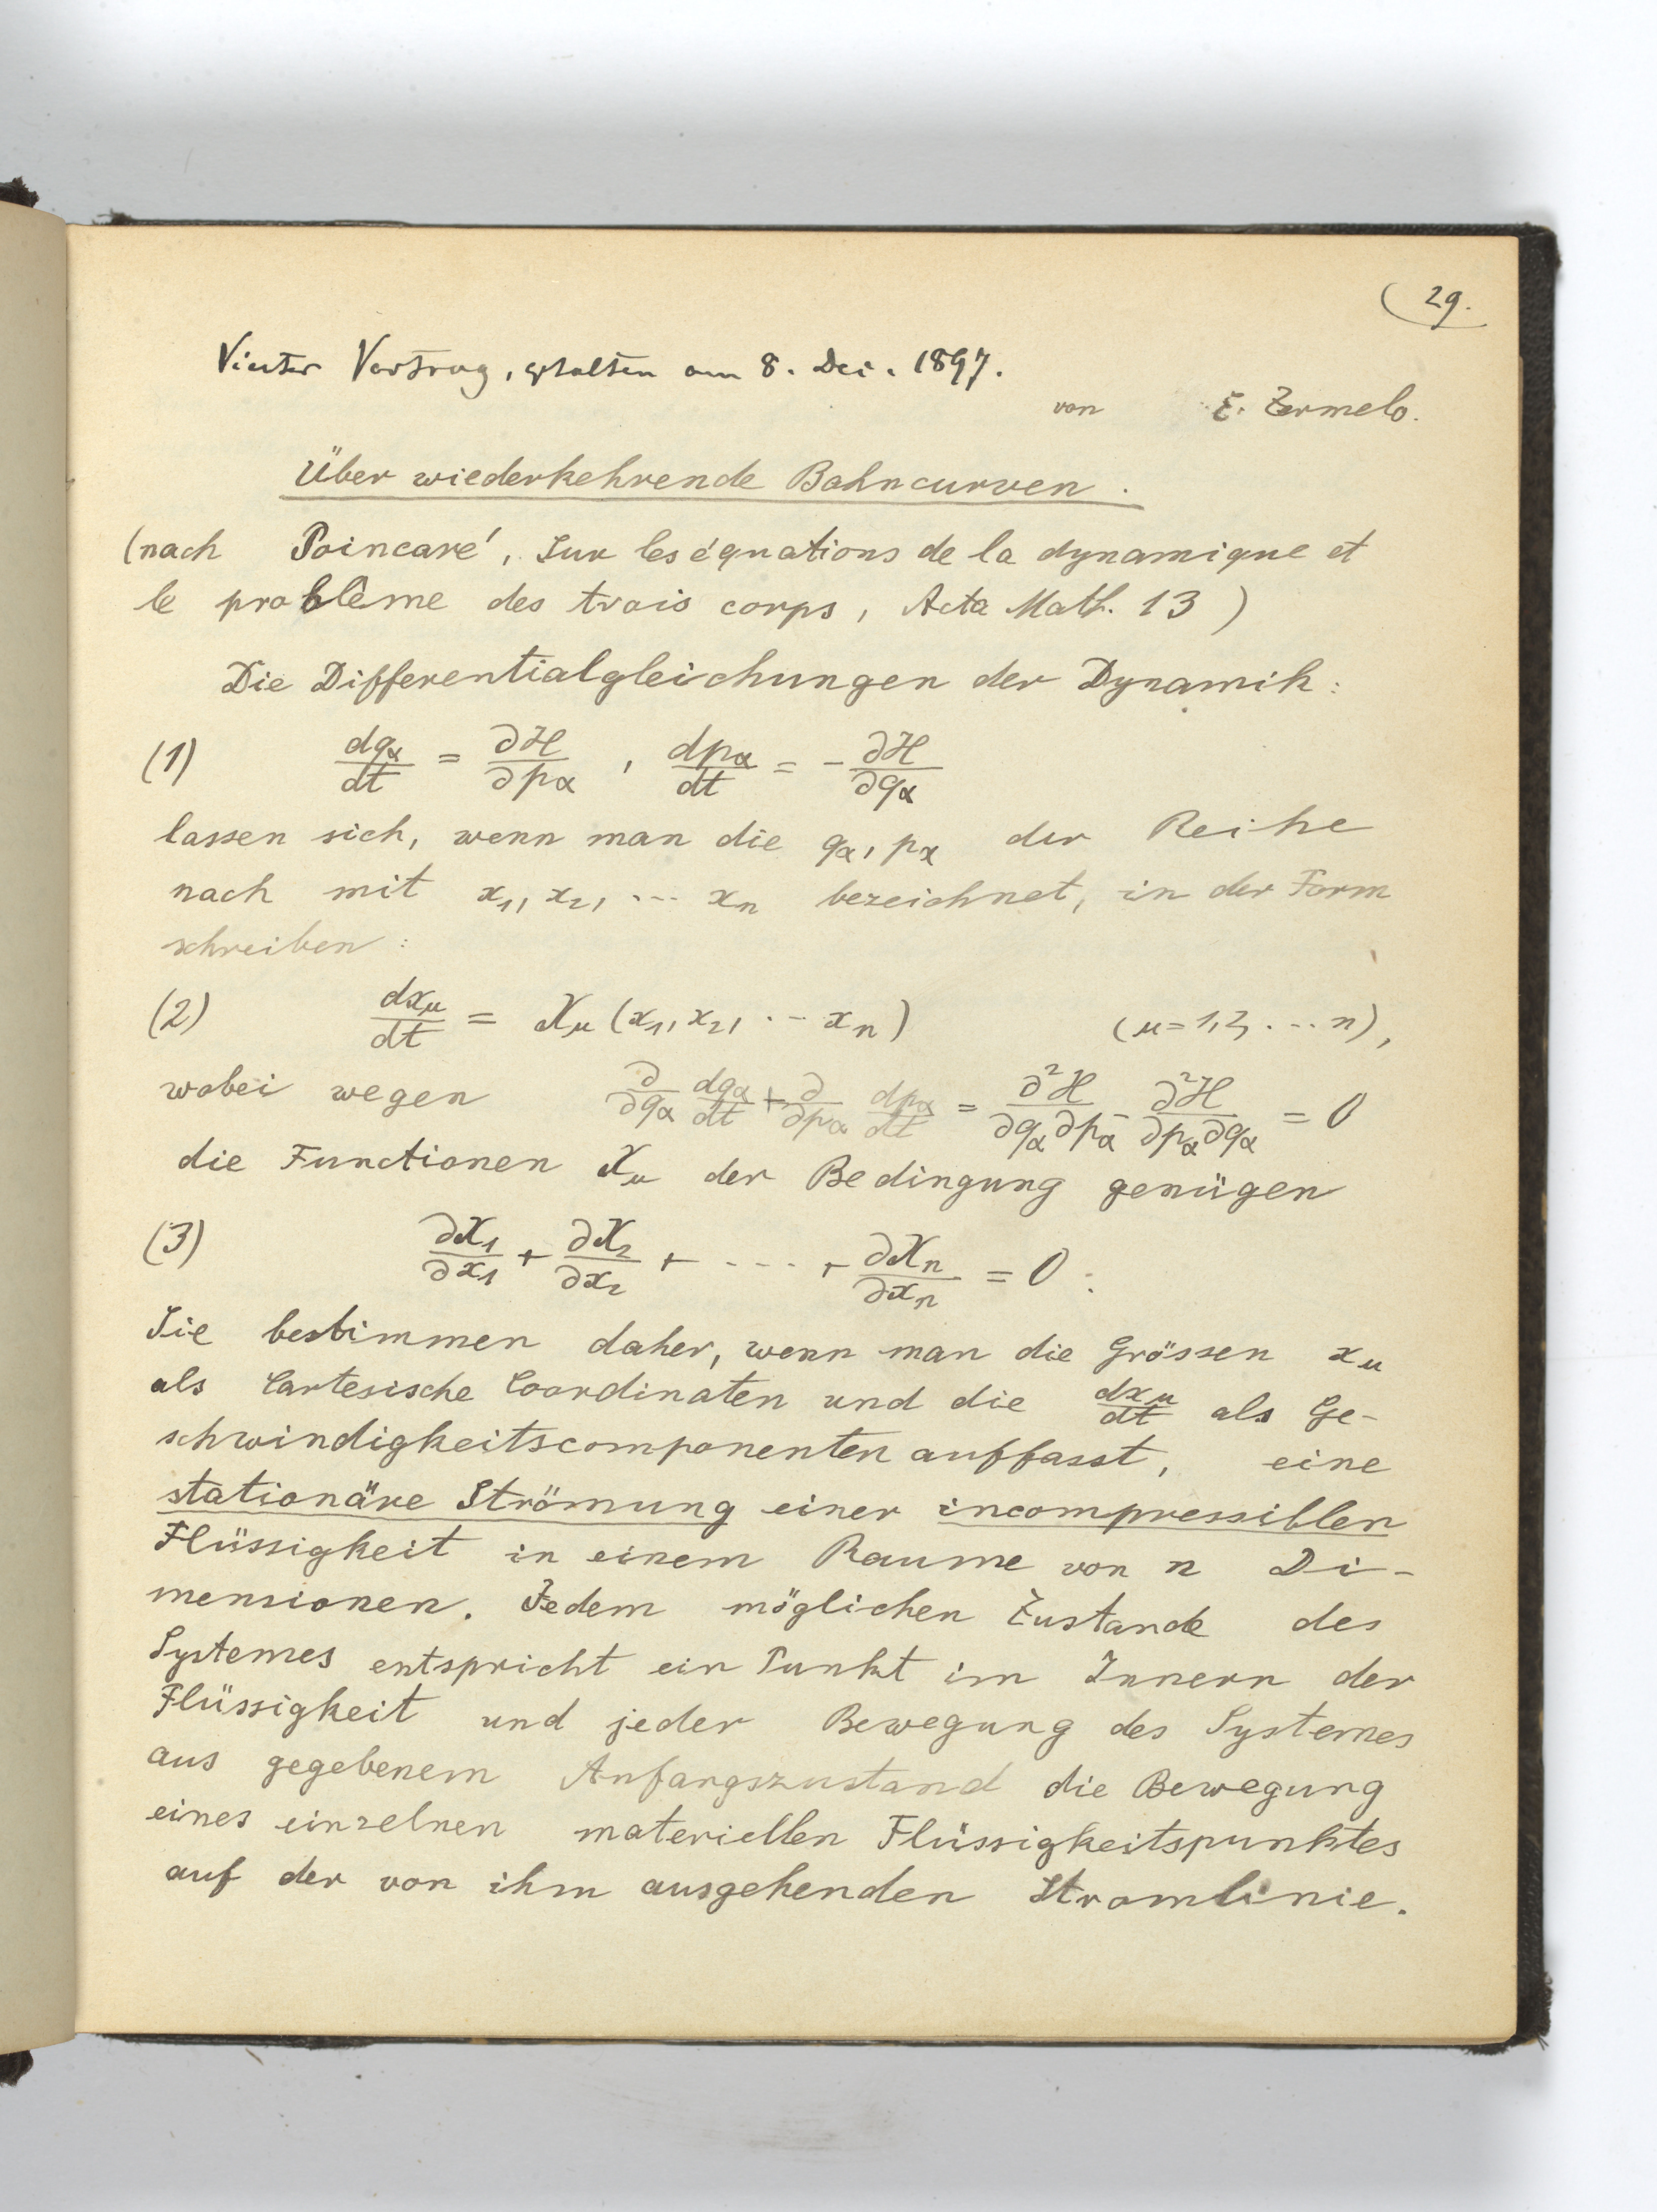 29.
Vierter Vortrag, gehalten am 8. Dec. 1897.
von E. Zermelo.
Über wiederkehrende Bahncurven.
(nach Poincaré, Sur les équations de la dynamique et
le problême des trois corps, Acta Math. 13)
Die Differentialgleichungen der Dynamik:
(1) dqα/dt = ∂H/∂pα , dpα/dt = −∂H/∂qα
lassen sich, wenn man die qα, pα der Reihe
nach mit x₁, x₂, ... xn bezeichnet, in der Form
schreiben:
(2) dxμ/dt = Xμ (x₁, x₂, ... xn) (μ = 1, 2, ... n),
wobei wegen ∂/∂qα dqα/dt + ∂/∂pα dpα/dt = ∂²H/∂qα∂pα − ∂²H/∂pα∂qα = 0
die Functionen Xμ der Bedingung genügen
(3) ∂X₁/∂x₁ + ∂X₂/∂x₂ + .... + ∂Xn/∂xn = 0:
Sie bestimmen daher, wenn man die Grössen xμ
als Cartesische Coordinaten und die dxμ/dt als Ge-
schwindigkeitscomponenten auffasst, eine
stationäre Strömung einer incompressiblen
Flüssigkeit in einem Raume von n Di-
mensionen. Jedem möglichen Zustande des
Systemes entspricht ein Punkt im Innern der
Flüssigkeit und jeder Bewegung des Systemes
aus gegebenem Anfangszustand die Bewegung
eines einzelnen materiellen Flüssigkeitspunktes
auf der von ihm ausgehenden Stromlinie.